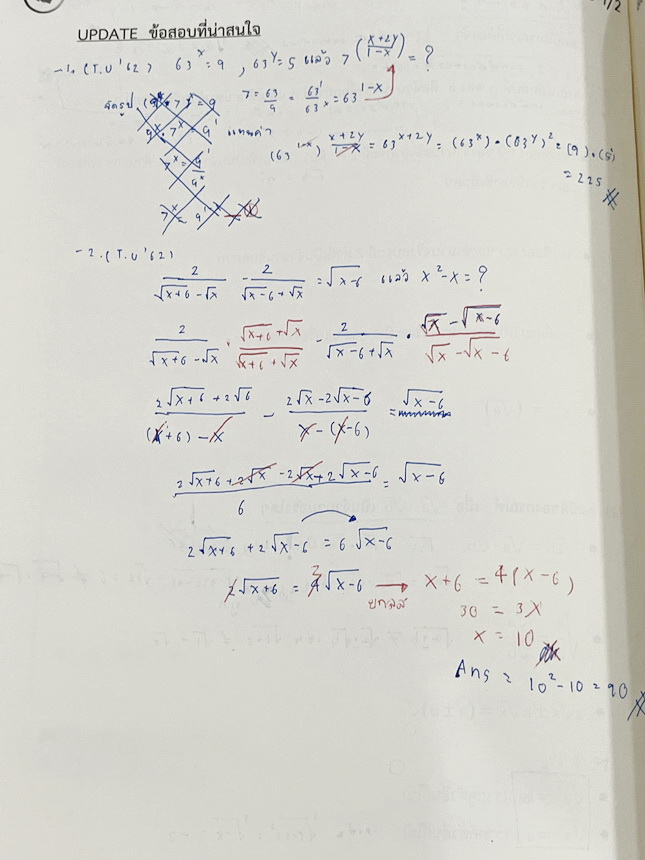 1/2
UPDATE ข้อสอบที่น่าสนใจ
-1. (T.U '62) 63^x = 9 , 63^y = 5 แล้ว 7^((x+2y)/(1-x)) = ?
7 = 63/9 = 63^1/63^x = 63^(1-x)
จัดรูป (9^x · 7^x = 9
9^x · 7^x = 9^1
7^x = 9^1/9^x
7^x = 9^(1-x)
แทนค่า
(63^(1-x))^((x+2y)/(1-x)) = 63^(x+2y) = (63^x) · (63^y)^2 = (9) · (5)^2
= 225
-2. (T.U '62)
2/(√(x+6) - √x) - 2/(√(x-6) + √x) = √(x-6) แล้ว x^2 - x = ?
2/(√(x+6) - √x) · (√(x+6) + √x)/(√(x+6) + √x) - 2/(√(x-6) + √x) · (√x - √(x-6))/(√x - √(x-6))
(2√(x+6) + 2√6)/((x+6) - x) - (2√x - 2√(x-6))/(x - (x-6)) = √(x-6)
(2√(x+6) + 2√x - 2√x + 2√(x-6))/6 = √(x-6)
2√(x+6) + 2√(x-6) = 6√(x-6)
2√(x+6) = 4√(x-6) → x+6 = 4(x-6)
2
ยกสอง 30 = 3x
x = 10
Ans = 10^2 - 10 = 90